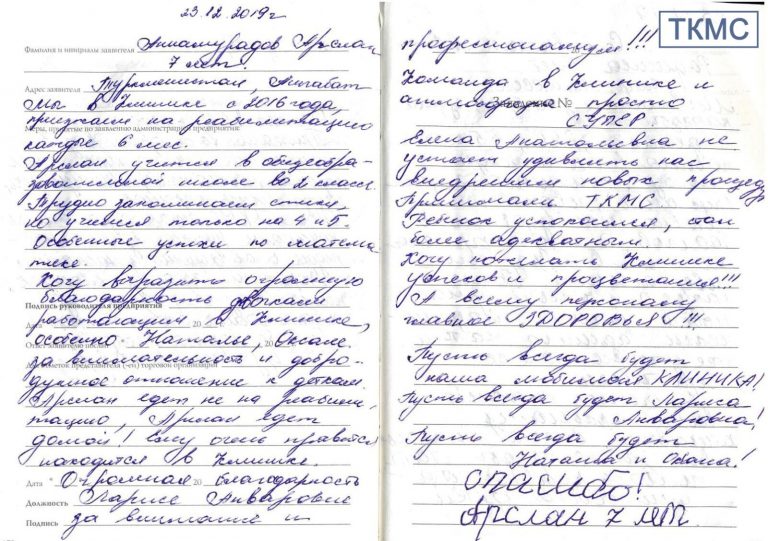 23.12.2019г
Фамилия и инициалы заявителя Аннамурадов Арслан
7 лет.
Адрес заявителя Туркменистан, Ашгабат
Мы в Клинике с 2016 года,
приезжаем на реабилитацию
Меры, принятые по заявлению администрацией предприятия:
каждые 6 мес.
Арслан учится в общеобра-
зовательной школе во 2 классе.
Трудно запоминает стихи,
но учится только на 4 и 5.
Особенные успехи по матема
тике.
Хочу выразить огромную
благодарность девочкам
Подпись руководителя предприятия
работающим в Клинике,
особенно Наталье, Оксане
за внимательность и добро-
душное отношение к деткам.
Арслан едет не на реабилит.
тацию, Арслан едет
домой! Ему очень нравится
находится в Клинике.
Дата Огромная 20 благодарность
Должность Ларисе Анваровне
Подпись за внимание и
ТКМС
профессионализм!!!
Команда в Клинике и
атмосфера просто
СУПЕР
Елена Анатольевна не
устает удивлять нас
внедрением новых процедур
ТКМС.
Ребенок успокоился, стал
более адекватным.
Хочу пожелать Клинике
успехов и процветания!!!
А всему персоналу
главное ЗДОРОВЬЯ!!!
Пусть всегда будет
наша любимая КЛИНИКА!
Пусть всегда будет Лариса
Анваровна!
Пусть всегда будет
Наташа и Оксана!
СПАСИБО!
Арслан 7 лет.